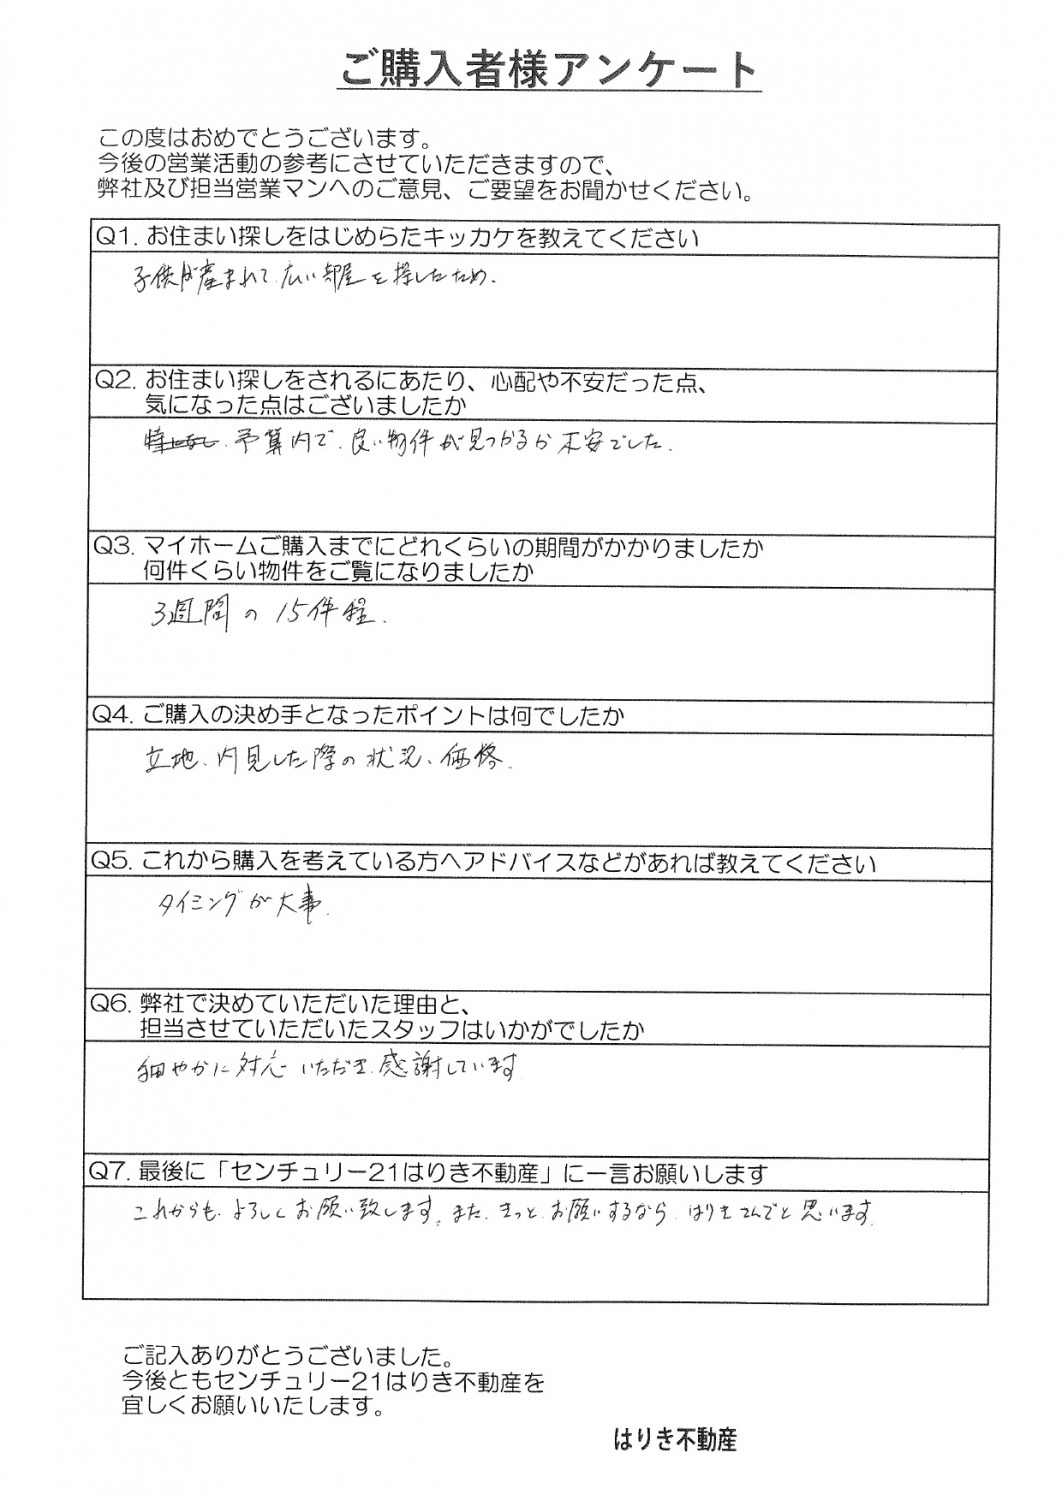 ご購入者様アンケート
この度はおめでとうございます。
今後の営業活動の参考にさせていただきますので、
弊社及び担当営業マンへのご意見、ご要望をお聞かせください。
Q1. お住まい探しをはじめらたキッカケを教えてください
子供が産まれて、広い部屋を探したため。
Q2. お住まい探しをされるにあたり、心配や不安だった点、
気になった点はございましたか
特になし、予算内で、良い物件が見つかるか不安でした。
Q3. マイホームご購入までにどれくらいの期間がかかりましたか
何件くらい物件をご覧になりましたか
3週間の15件程。
Q4. ご購入の決め手となったポイントは何でしたか
立地、内見した際の状況、価格。
Q5. これから購入を考えている方へアドバイスなどがあれば教えてください
タイミングが大事。
Q6. 弊社で決めていただいた理由と、
担当させていただいたスタッフはいかがでしたか
細やかに対応いただき、感謝しています
Q7. 最後に「センチュリー21はりき不動産」に一言お願いします
これからも、よろしくお願い致します。また、きっと、お願いするなら、はりきさんでと思います。
ご記入ありがとうございました。
今後ともセンチュリー21はりき不動産を
宜しくお願いいたします。
はりき不動産